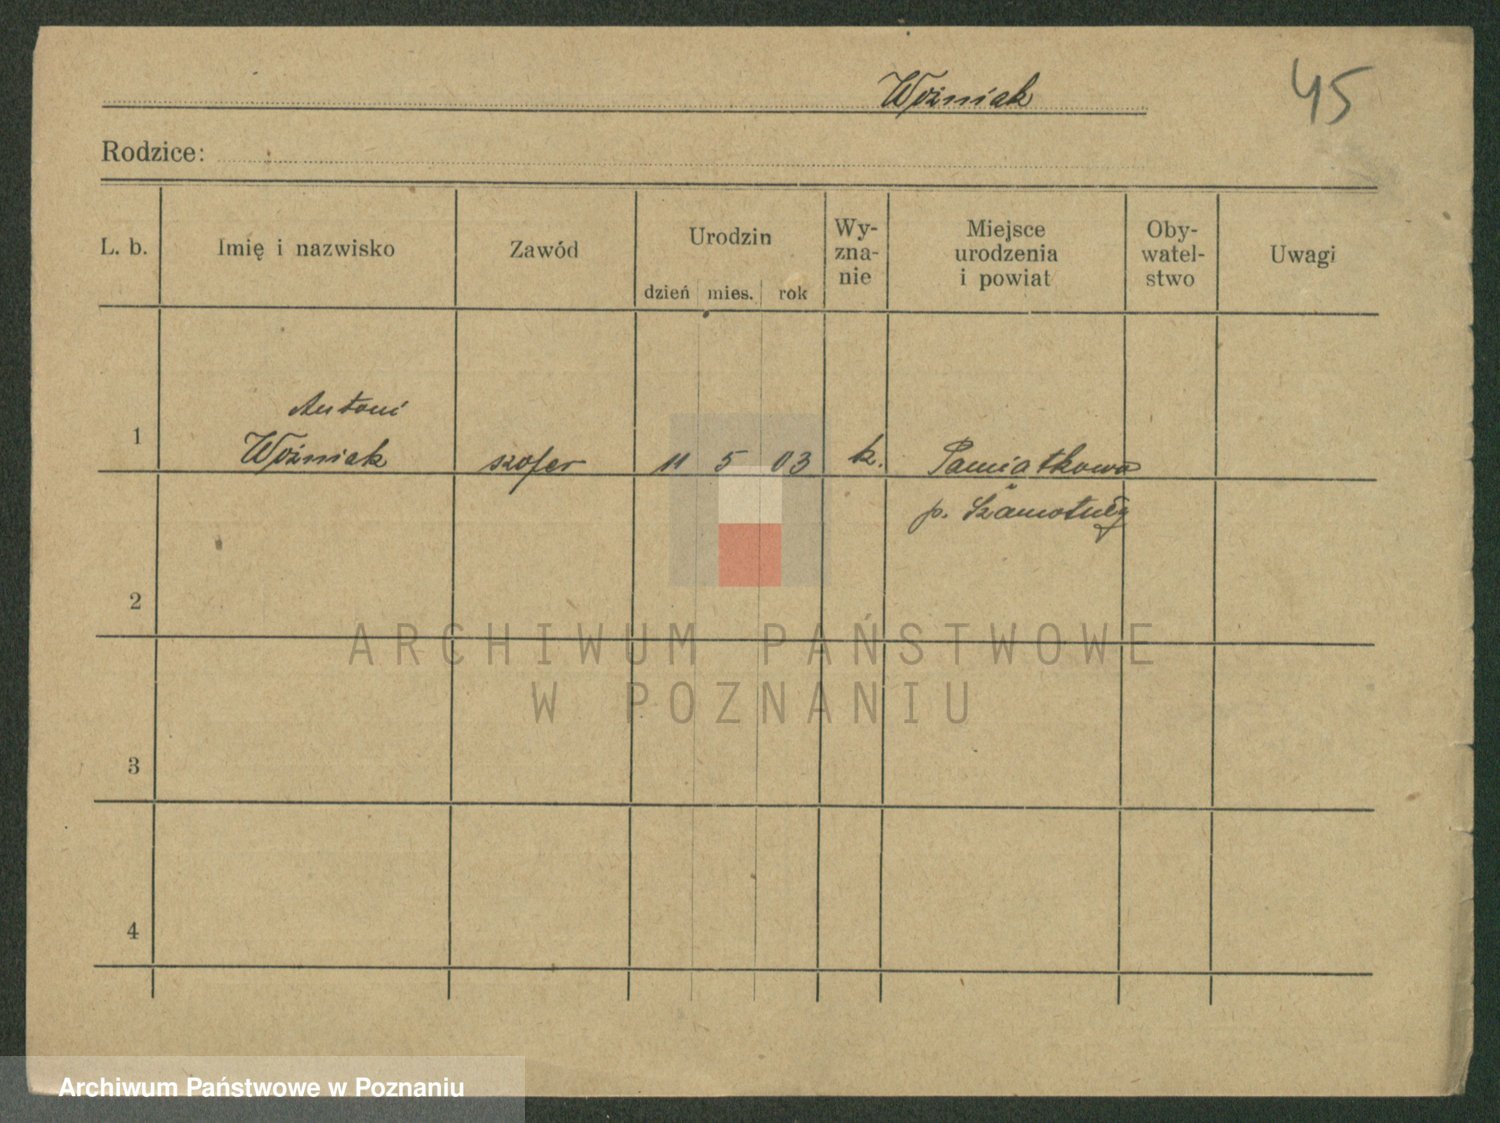 Woźniak
45
Rodzice:
L. b.
Imię i nazwisko
Zawód
Urodzin
dzień mies. rok
Wy-
zna-
nie
Miejsce
urodzenia
i powiat
Oby-
watel-
stwo
Uwagi
Antoni
1 Woźniak szofer 11 5 03 k. Pamiątkowo
p. Szamotuły
2
3
4
ARCHIWUM PAŃSTWOWE
W POZNANIU
Archiwum Państwowe w Poznaniu